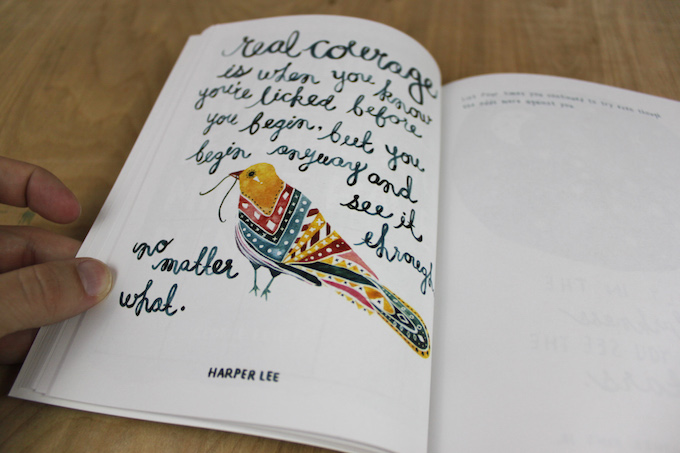 real courage
is when you know
you're licked before
you begin, but you
begin anyway and
see it
through
no
matter
what.
HARPER LEE
List four times you continued to try even though
the odds were against you.
IN THE
darkness
YOU SEE THE
stars